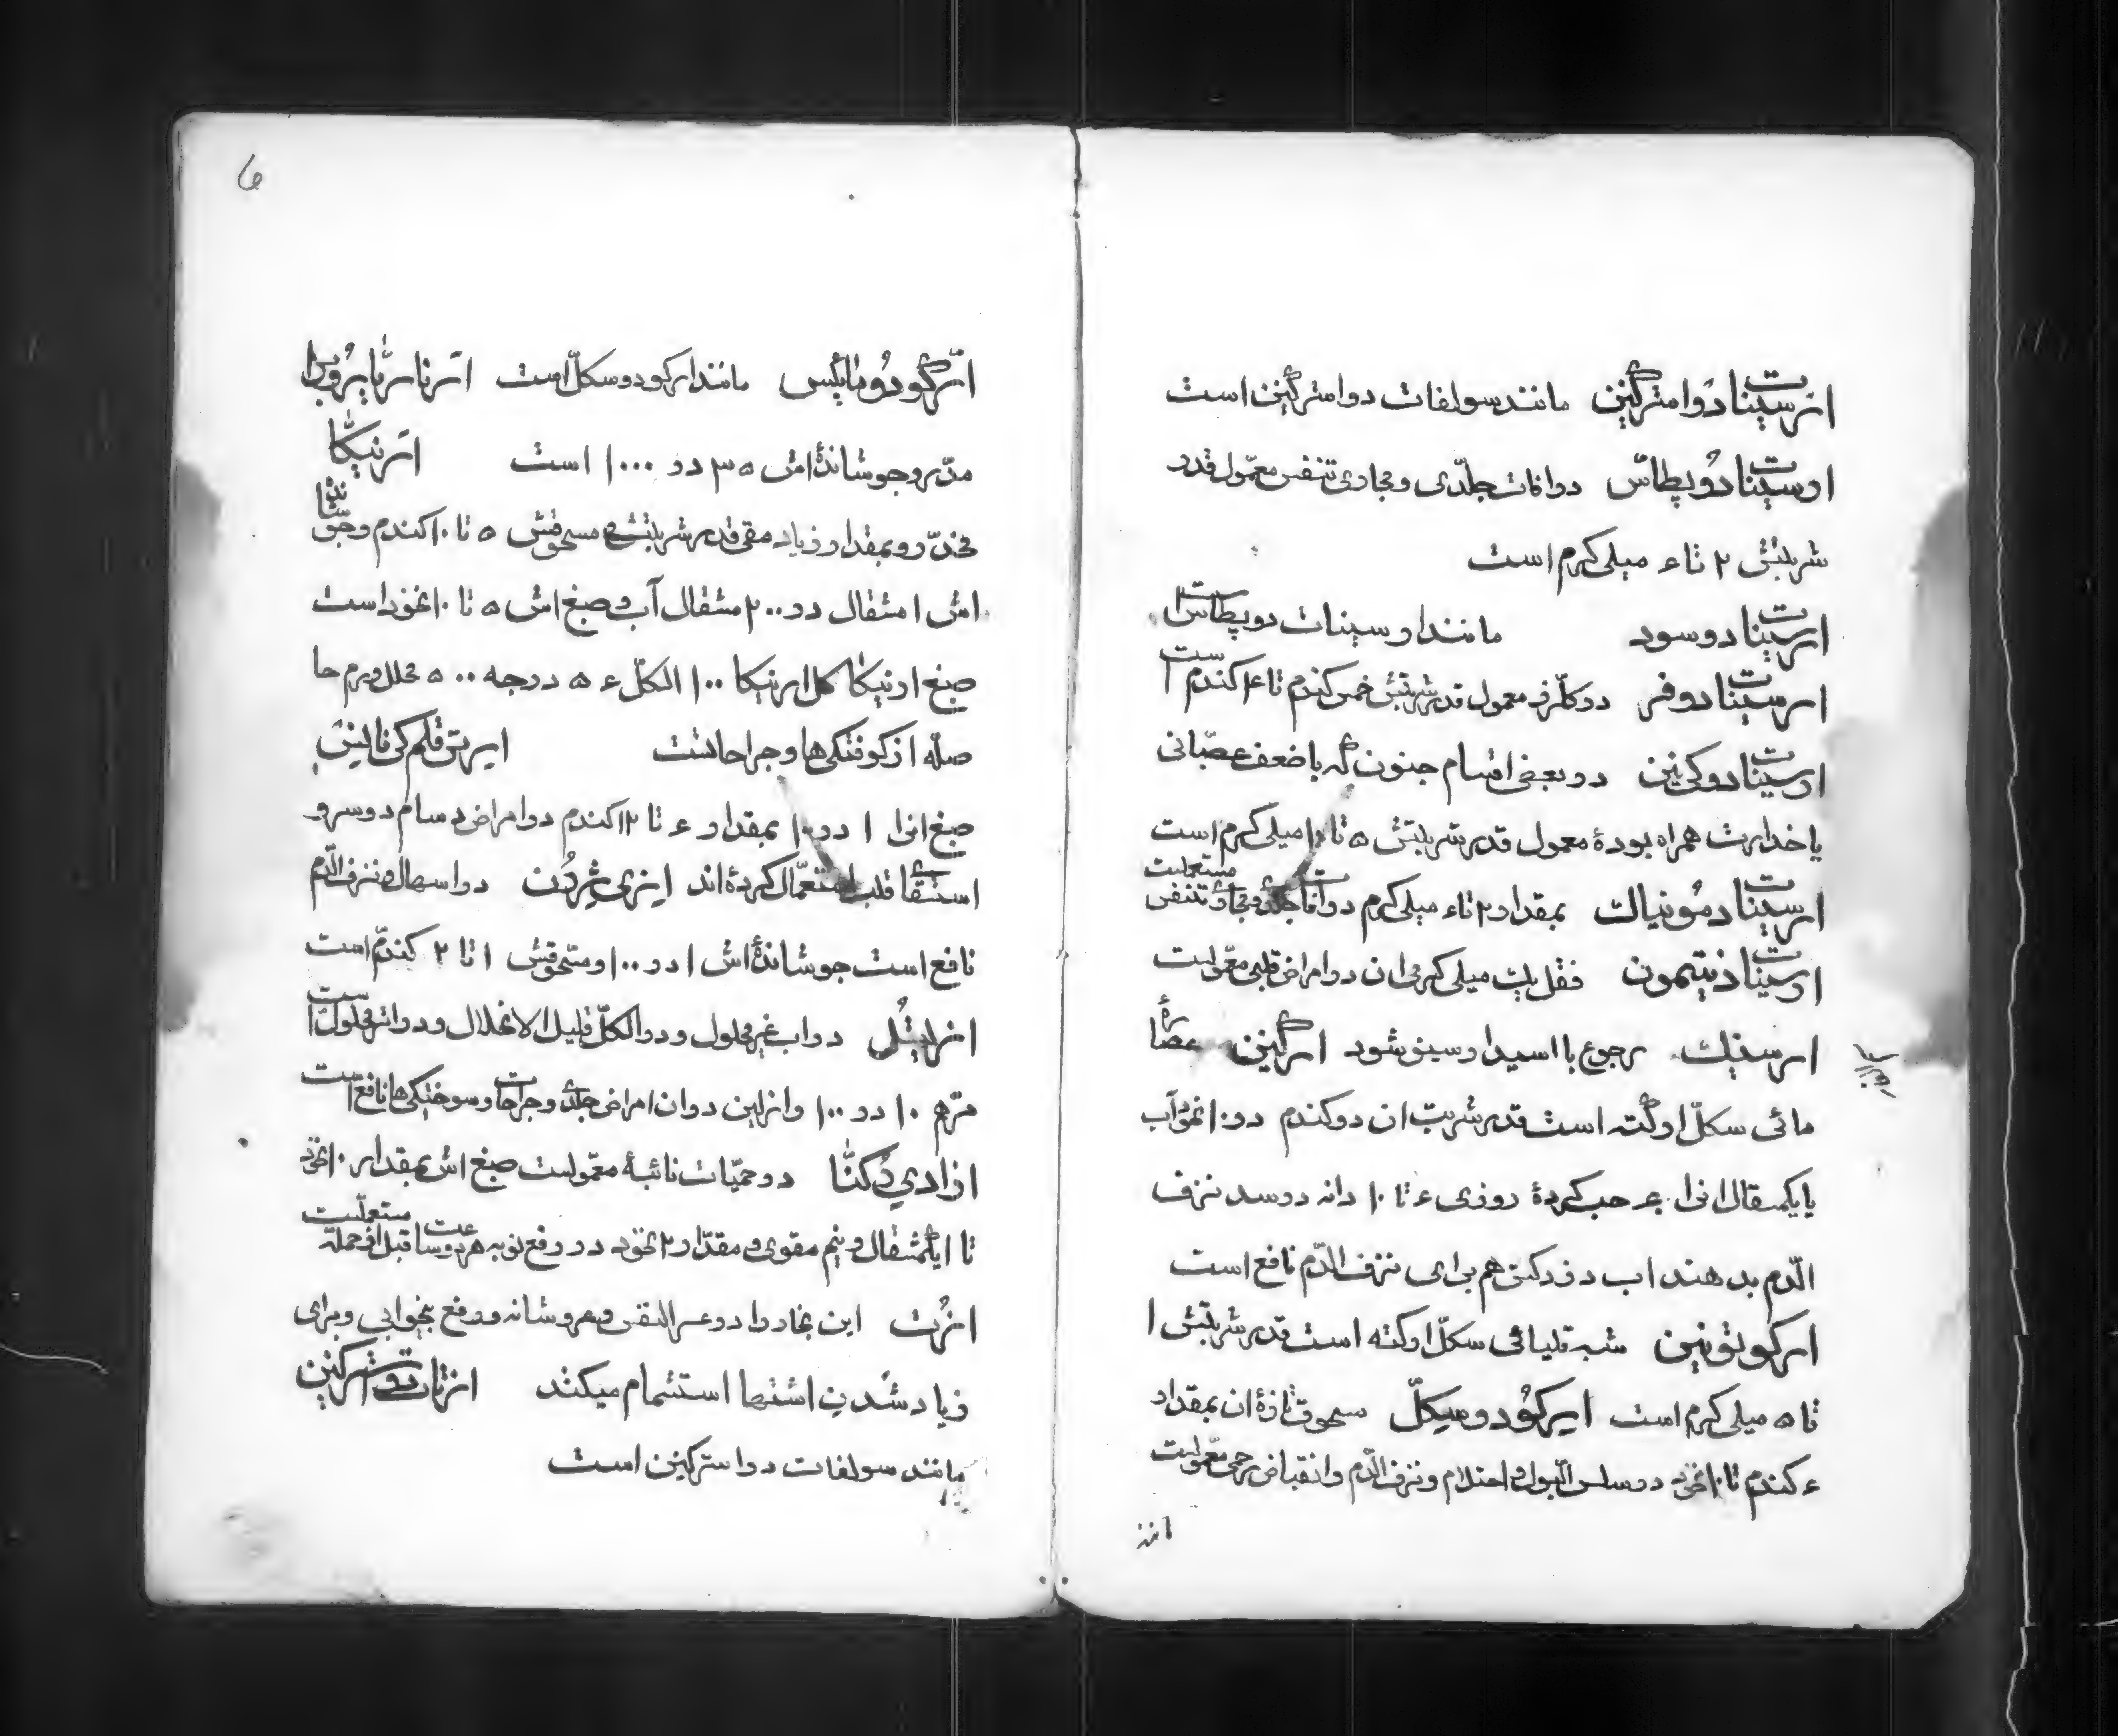 ارسنات دوا مترگنین مانند سولفات دوا مترگنین است
ارسنات دوپطاس در افات جلدی و مجاری تنفس معمول قدر
شربتش ۲ تا ۴ میلی کرم است
ارسنات دوسود مانند ارسنات دوپطاس است
ارسنات دوفر در کلرز معمول قدر شربتش خمس کندم تا ۴ کندم است
ارسنات دوکی نین در بعضی اقسام جنون که با ضعف عصبانی
یا خدارت همراه بوده معمول قدر شربتش ۵ تا ۱۰ میلی کرم است
ارسنات دمونیاک بمقدار ۲ تا ۴ میلی کرم در افات جلدی و مجاری تنفس مستعملست
ارسنات دنتیمون فقل یک میلی کرمی ان در امراض قلبی معمولست
ارسنیک رجوع با اسید ارسینو شود ارگتین عصاره
مائی سکل ارگته است قدر شربت ان دو کندم در ۱۰ نخود آب
یا یکمثقال انرا ۴۰ حب کرده روزی ۴ تا ۱۰ دانه در سد نزف
الدم بدهند اب دفرکتن هم برای نزف الدم نافع است
ارکوتونین شبه قلیائی سکل ارکته است قدر شربتش ۱
تا ۵ میلی کرم است ایرکودوسکل مسحوق تازه ان بمقدار
۴ کندم تا ۱۰ نخود در سلس البول و احتلام و نزف الدم و انقباض رحمی معمولست
ارگودومائیس مانند ارکودوسکل است ارناریا پروبرا
مدر و جوشانده اش ۳۵ در ۱۰۰۰ است ارنیکا
مخدر و بمقدار زیاد مقی قدر شربتش مسحوقش ۵ تا ۱۰ کندم و جوشانده
اش ۱ مثقال در ۲۰۰ مثقال آب و صبغ اش ۵ تا ۱۰ نخود است
صبغ ارنیکا کل ارنیکا ۱۰۰ الکل ۴۵ درجه ۵۰۰ محلل ورم حا
صله از کوفتگی ها و جراحاتست ایریتی قلم کی فالینس
صبغ انرا ۱ در ۱۰ بمقدار ۴ تا ۱۲ کندم در امراض دسام دوسر و
استسقا قلب استعمال کرده اند ایزی ژردن در اسهال و نزف الدم
نافع است جوشانده اش ۱ در ۱۰۰ و مسحوقش ۱ تا ۲ کندم است
ازلیتل در اب غیر محلول و در الکل قلیل الانحلال و در اتر محلول است
مرهم ۱۰ در ۱۰۰ وازلین در ان امراض جلدی و جراحات و سوختگی ها نافع است
ازادی دکتا در حمیات نائبه معمولست صبغ اش بمقدار ۱۰ نخود
تا ایکمثقال و نیم مقوی و مقدار ۲ نخود در رفع نوبه هر دو ساعت قبل از حمله مستعملست
ازت این بخار را در عسر النفس و رفع بیخوابی و برای
زیاد شدن اشتها استشمام میکنند ازتات دو استرکنین
مانند سولفات دو استرکنین است